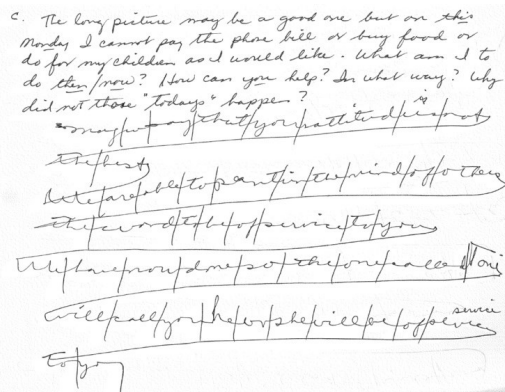 c. The long picture may be a good one but on this
Monday I cannot pay the phone bill or buy food or
do for my children as I would like. What am I to
do then/now? How can you help? In what way? Why
did not those "todays" happen?
may/we/say/that/you/attitud/is/not
the/best
We/are/able/to/pant/in/the/mind/of/others
the/word/to/be/of/service/to/you
We/have/now/done/so/the/one/called/Toni
will/call/you/he/or/she/will/be/of/sevice service
to/you